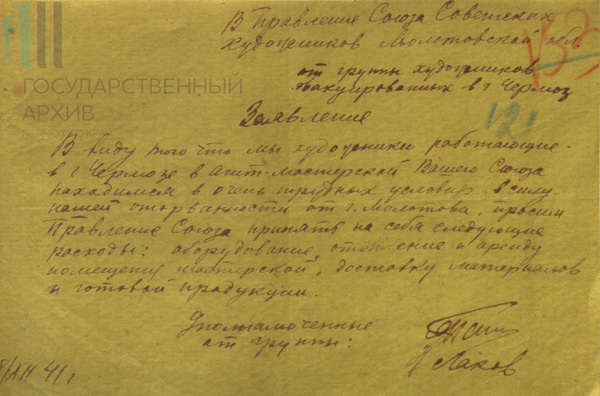 В Правление Союза Советских
художников Молотовской обл
от группы художников
эвакуированных в г Чермоз
121
ГОСУДАРСТВЕННЫЙ
АРХИВ
Заявление
В виду того что мы художники работающие
в г Чермозе в агит-мастерской Вашего Союза
находимся в очень трудных условиях в силу
нашей оторванности от г. Молотова, просим
Правление Союза принять на себя следующие
расходы: оборудование, отопление и аренду
помещения мастерской, доставку материалов
и готовой продукции.
Уполномоченные
от группы:
Лаков
XII 41 г